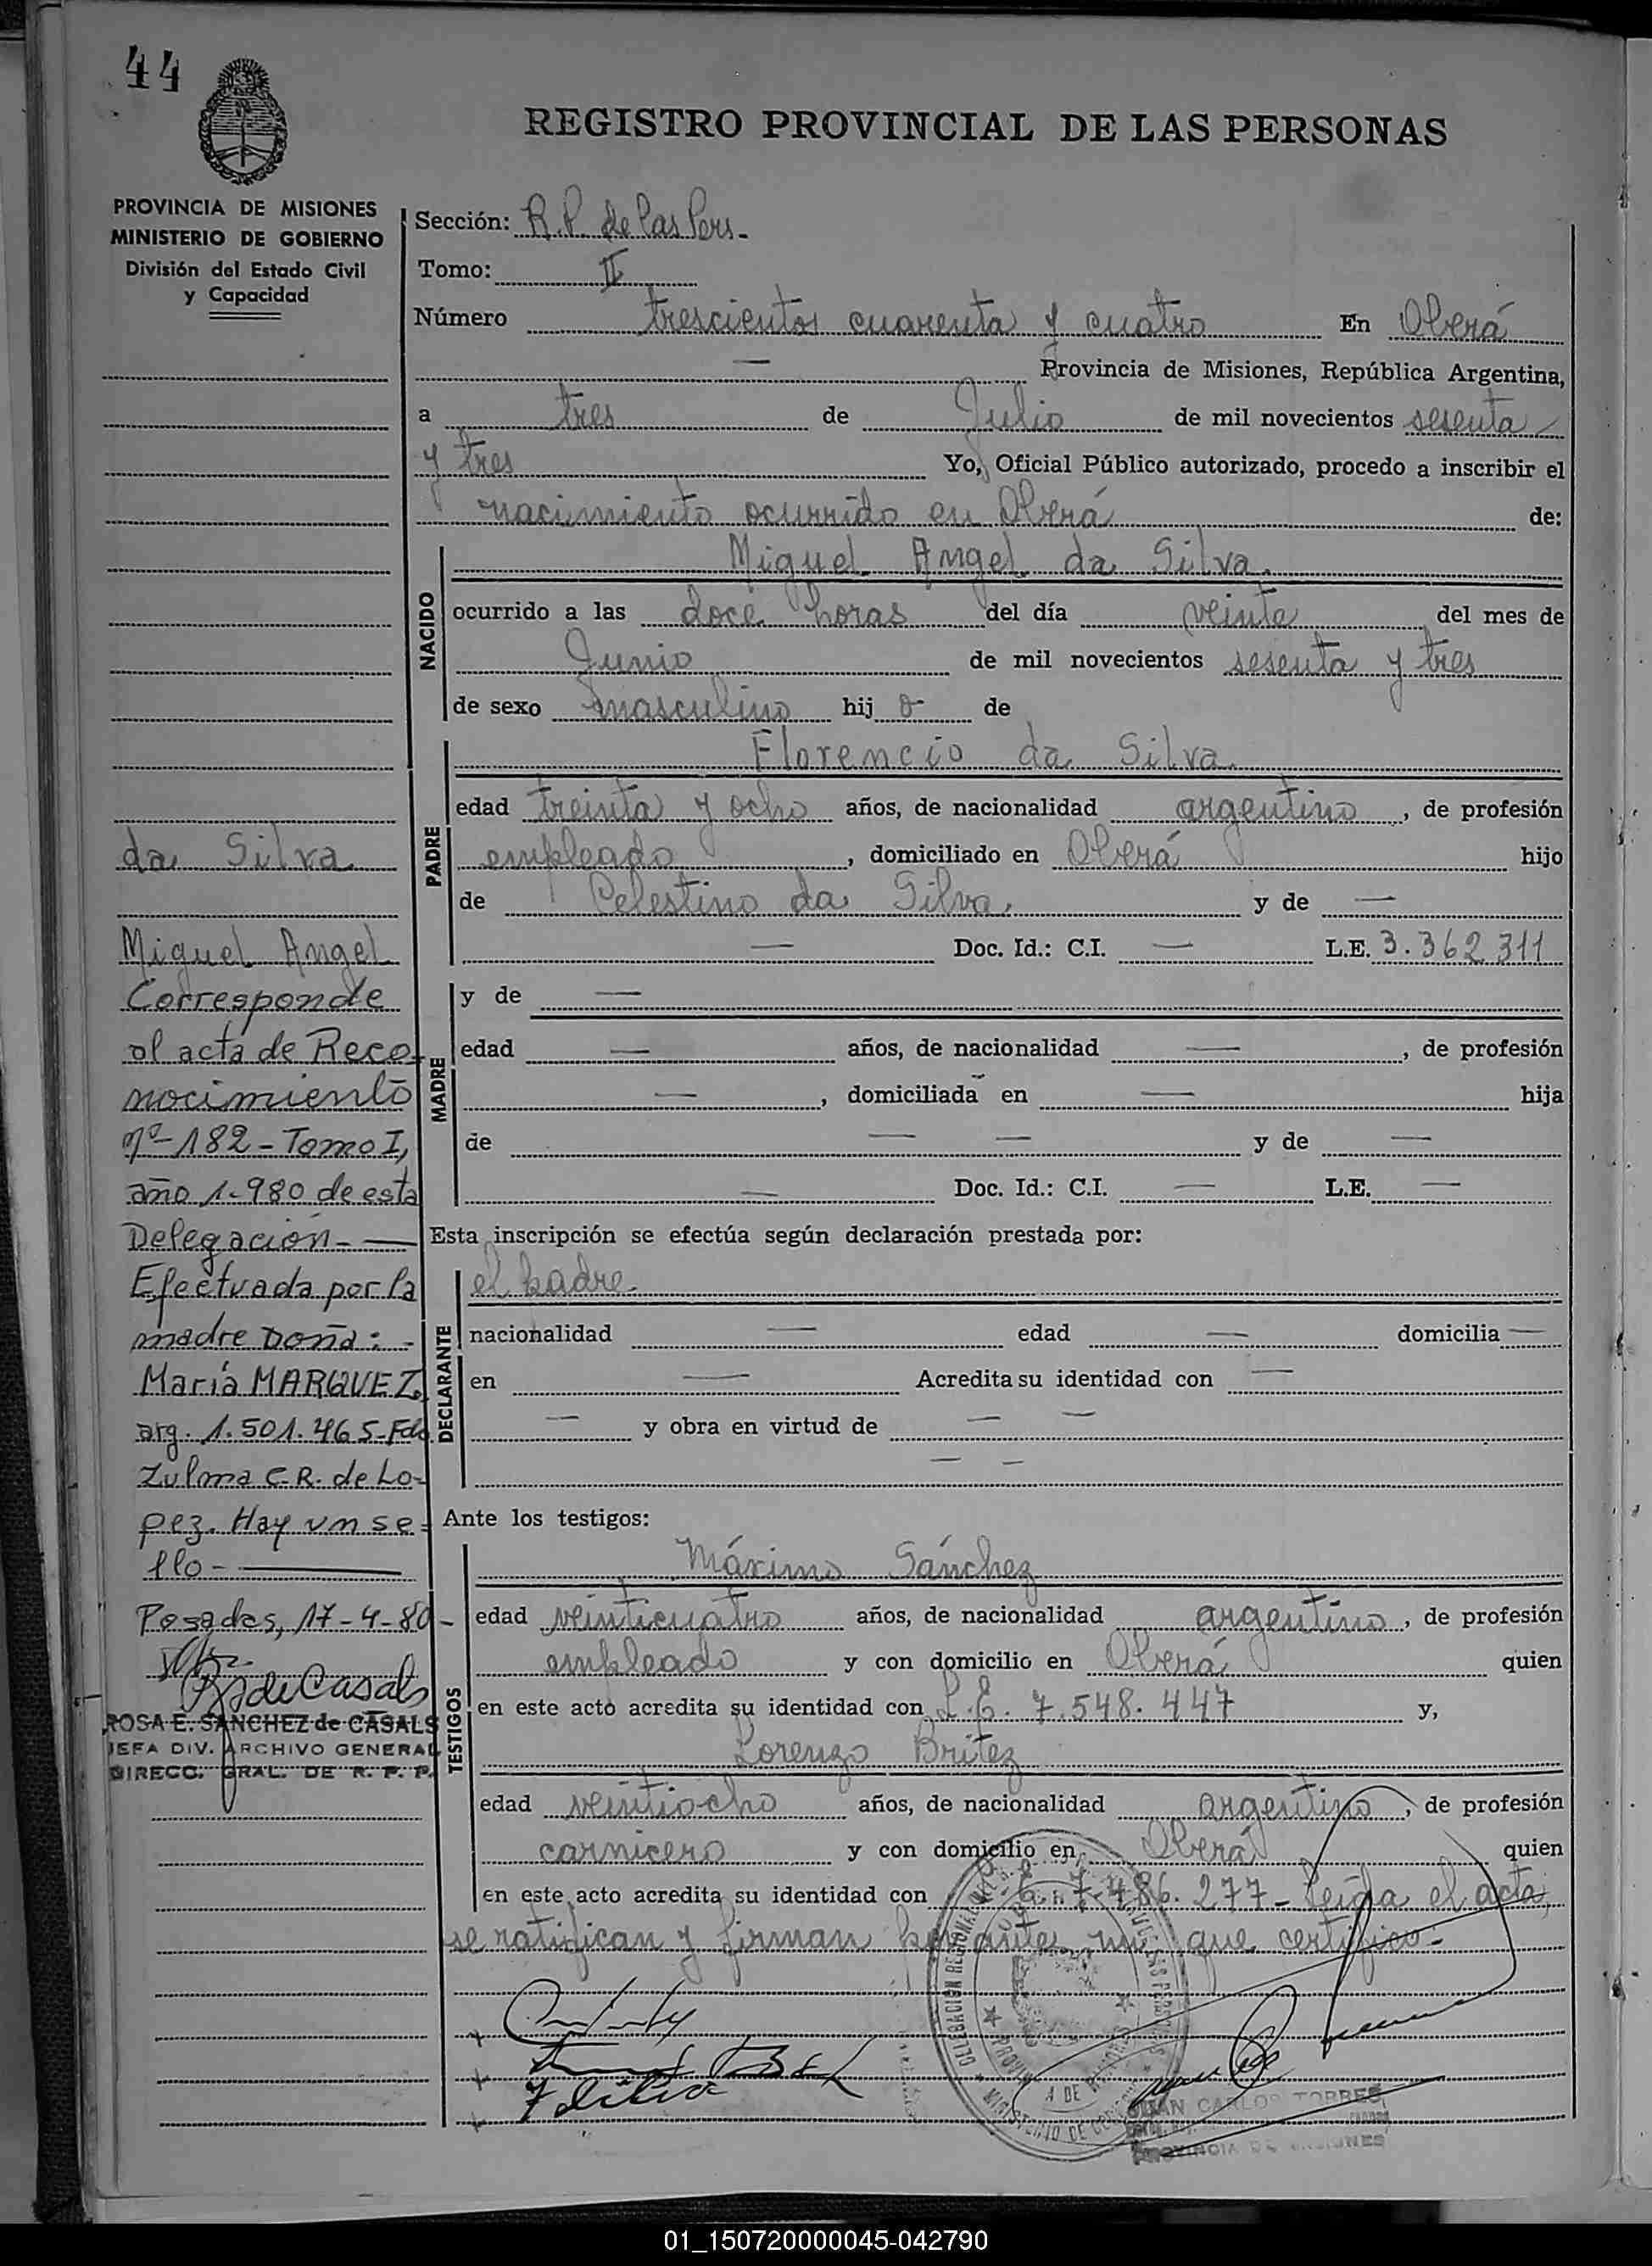 44
REGISTRO PROVINCIAL DE LAS PERSONAS
PROVINCIA DE MISIONES
MINISTERIO DE GOBIERNO
División del Estado Civil
y Capacidad
Sección: R.P. de las Pers-
Tomo: II
Número trescientos cuarenta y cuatro En Oberá
— Provincia de Misiones, República Argentina,
a tres de Julio de mil novecientos sesenta
y tres Yo, Oficial Público autorizado, procedo a inscribir el
nacimiento ocurrido en Oberá de:
NACIDO
Miguel Angel da Silva.
ocurrido a las doce horas del día veinte del mes de
Junio de mil novecientos sesenta y tres
de sexo masculino hijo de
PADRE
Florencio da Silva
edad treinta y ocho años, de nacionalidad argentino, de profesión
empleado, domiciliado en Oberá hijo
de Celestino da Silva y de —
— Doc. Id.: C.I. — L.E. 3.362.311
MADRE
y de —
edad — años, de nacionalidad —, de profesión
—, domiciliada en — hija
de — — y de —
— Doc. Id.: C.I. — L.E. —
Esta inscripción se efectúa según declaración prestada por:
DECLARANTE
el padre.
nacionalidad — edad — domicilia —
en — Acredita su identidad con —
— y obra en virtud de — —
— —
Ante los testigos:
TESTIGOS
Máximo Sánchez
edad veinticuatro años, de nacionalidad argentino, de profesión
empleado y con domicilio en Oberá quien
en este acto acredita su identidad con L.E. 7.548.447 y,
Lorenzo Britez
edad veintiocho años, de nacionalidad argentino, de profesión
carnicero y con domicilio en Oberá quien
en este acto acredita su identidad con L.E. 7.486.277- Leída el acta,
se ratifican y firman por ante mi que certifico.-
da Silva
Miguel Angel
Corresponde
al acta de Reco-
nocimiento
nº-182-Tomo I,
año 1.980 de esta
Delegación- —
Efectuada por la
madre Doña: -
María MARQUEZ,
arg. 1.501.465-Fdo.
Zulma C.R. de Lo-
pez. Hay un se-
llo- —
Posadas, 17-4-80-
R S de Casals
ROSA E. SANCHEZ de CASALS
JEFA DIV. ARCHIVO GENERAL
DIRECC. GRAL. DE R. P. P.
DELEGACION REGIONAL
MINISTERIO DE
JUAN CARLOS TORRES
PROVINCIA DE MISIONES
01_150720000045-042790